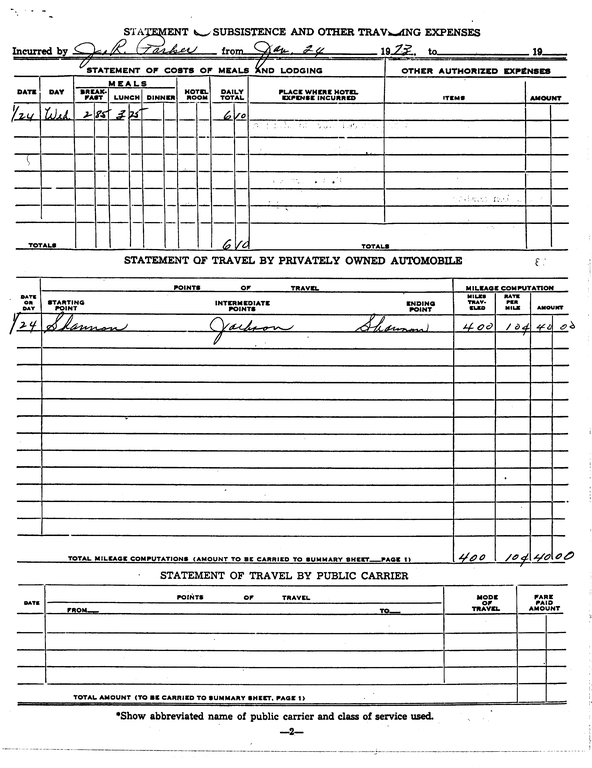 STATEMENT SUBSISTENCE AND OTHER EXPENSES
Incurred by Jas R. Parker from Jan. 24 1973, to 19
STATEMENT OF COSTS OF MEALS AND LODGING OTHER AUTHORIZED EXPENSES
MEALS
DATE DAY BREAK-FAST LUNCH DINNER HOTEL ROOM DAILY TOTAL PLACE WHERE HOTEL EXPENSE INCURRED ITEMS AMOUNT
1/24 Wed 2 85 3 25 6 10
TOTALS 6 10 TOTALS
STATEMENT OF TRAVEL BY PRIVATELY OWNED AUTOMOBILE
POINTS OF TRAVEL MILEAGE COMPUTATION
DATE OR DAY STARTING POINT INTERMEDIATE POINTS ENDING POINT MILES TRAV-ELED RATE PER MILE AMOUNT
1/24 Shannon Jackson Shannon 400 10¢ 40 00
TOTAL MILEAGE COMPUTATIONS (AMOUNT TO BE CARRIED TO SUMMARY SHEET—PAGE 1) 400 10¢ 40 00
STATEMENT OF TRAVEL BY PUBLIC CARRIER
POINTS OF TRAVEL
DATE FROM— TO— MODE OF TRAVEL FARE PAID AMOUNT
TOTAL AMOUNT (TO BE CARRIED TO SUMMARY SHEET, PAGE 1)
*Show abbreviated name of public carrier and class of service used.
—2—